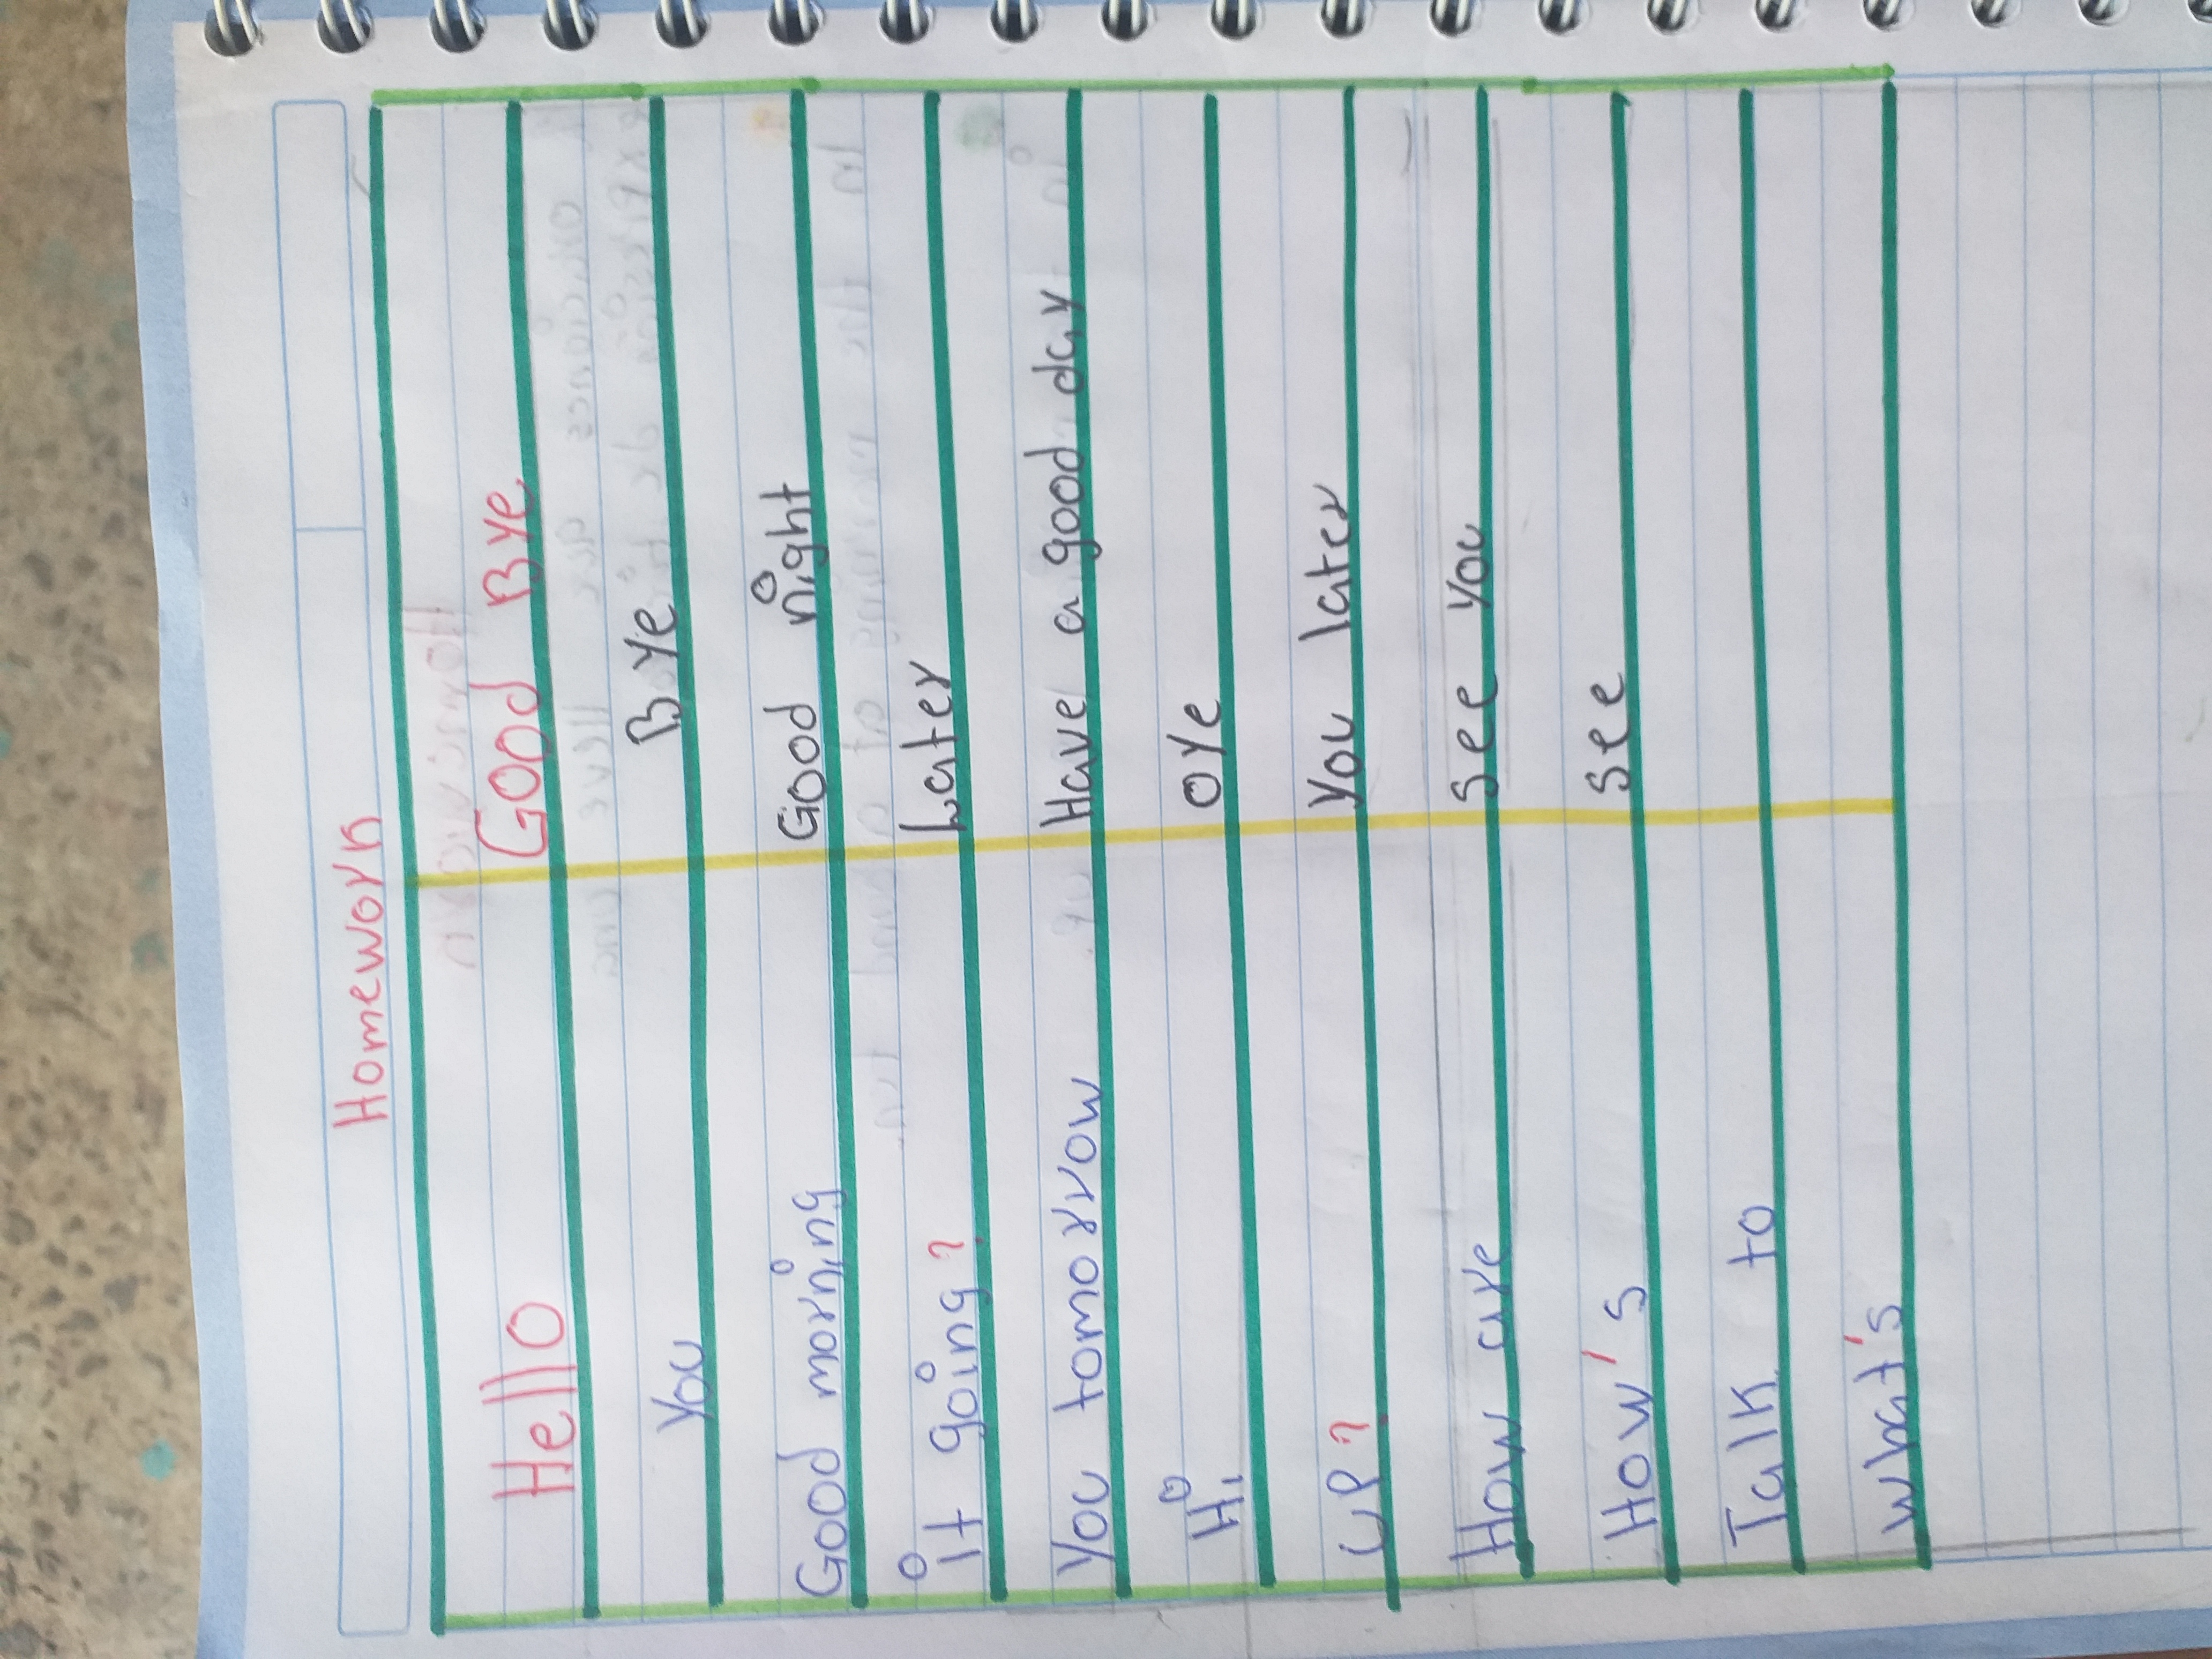 Homework
Hello Good Bye
You Bye
Good morning Good night
it going? Later
You tomorrow Have a good day
Hi oye
up? You later
How are see you
How's see
Talk to
what's